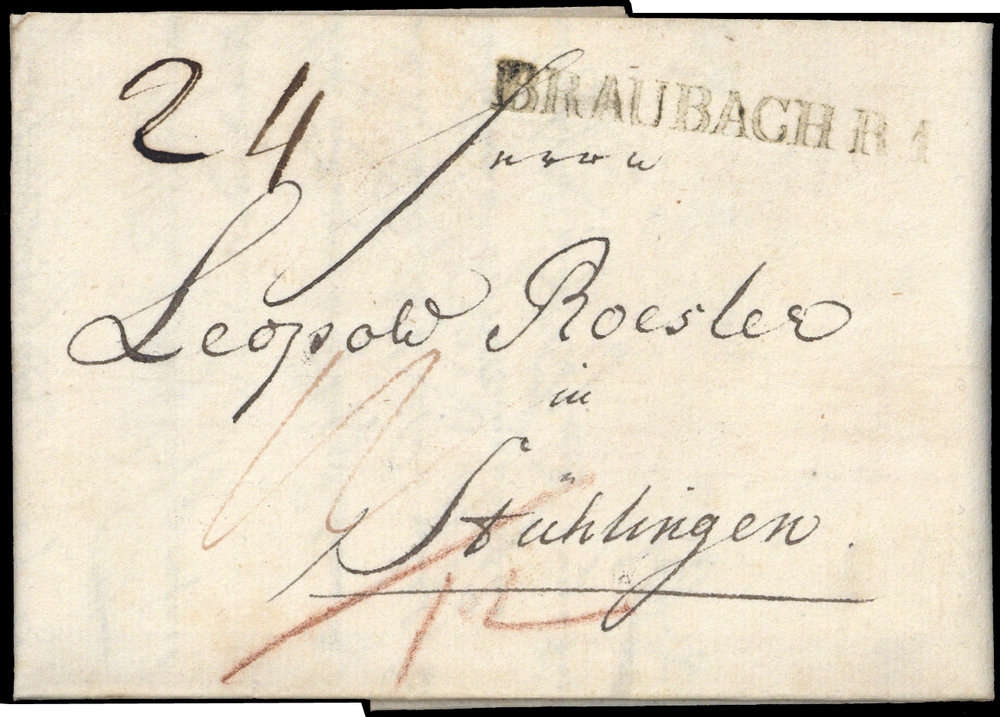 24
BRAUBACH R 1
Herrn
Leopold Roesler
in
Stühlingen.
12